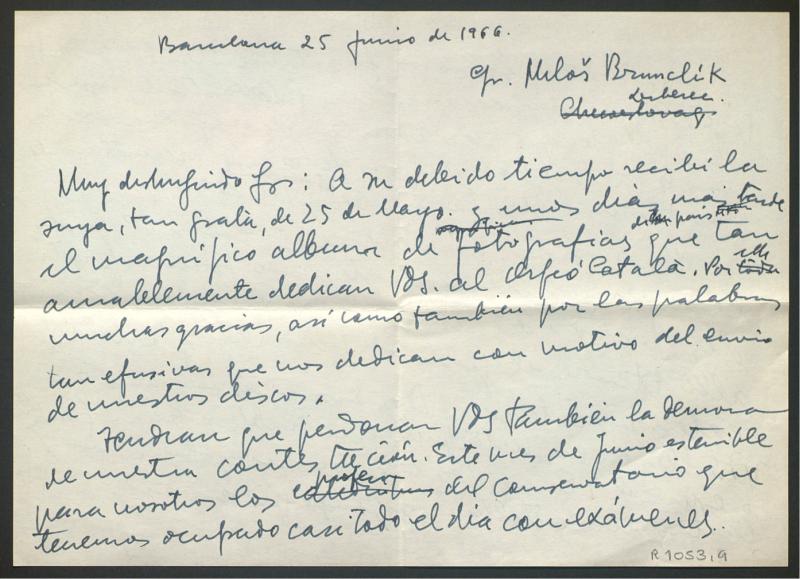 Barcelona 25 Junio de 1966.
Sr. Miloš Brunclík
Liberec.
Checoslovaq
Muy distinguido Sr: A su debido tiempo recibí la
suya, tan grata, de 25 de Mayo. y unos dias mas tarde
de su pais
el magnífico album de fotografias que tan
amablemente dedican Vds. al Orfeó Català. Por ello
muchas gracias, así como también por las palabras
tan efusivas que nos dedican con motivo del envio
de nuestros discos.
Tendran que perdonar Vds también la demora
de nuestra contestación. Este mes de Junio es terrible
profesores
para nosotros los catedráticos del conservatorio que
tenemos ocupado casi todo el dia con exámenes.
R 1053,9